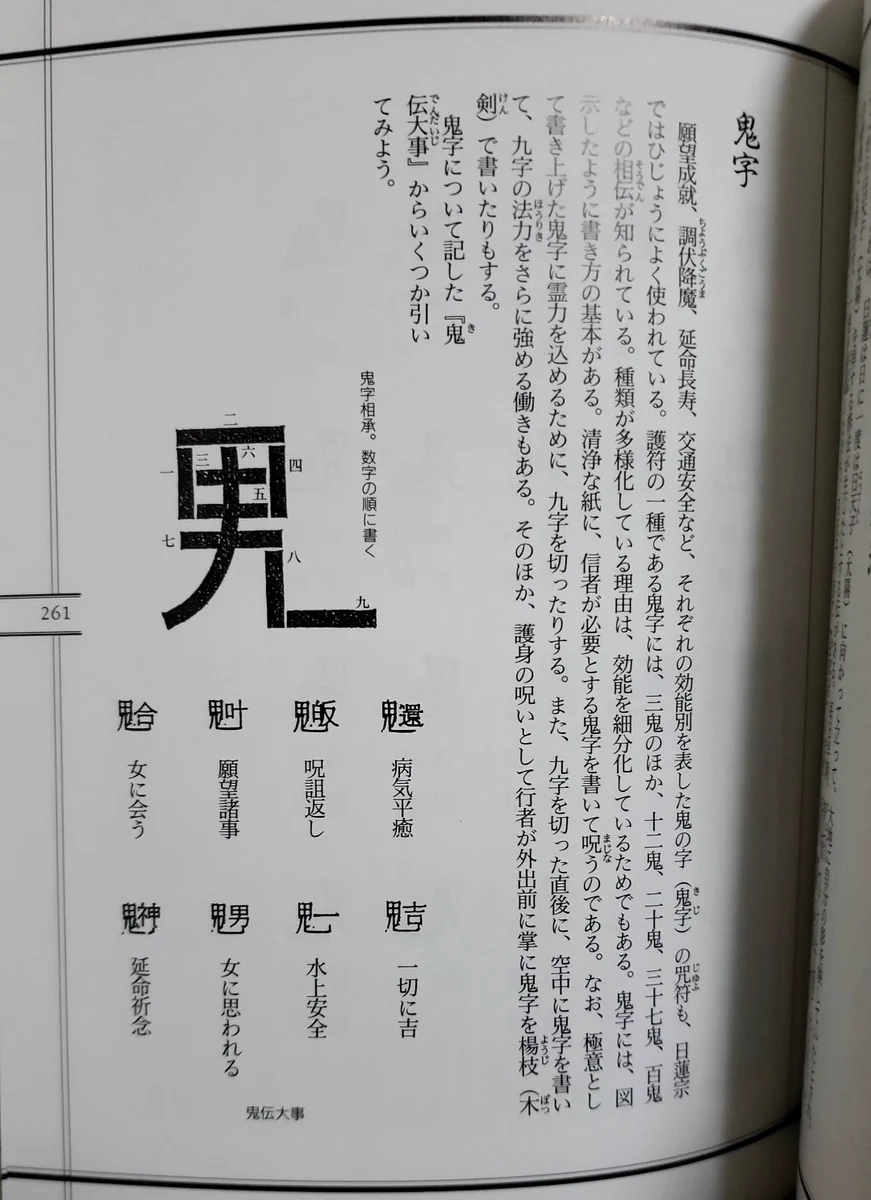 鬼字
願望成就、調伏降魔、延命長寿、交通安全など、それぞれの効能別を表した鬼の字（鬼字）の咒符も、日蓮宗
ではひじょうによく使われている。護符の一種である鬼字には、三鬼のほか、十二鬼、二十鬼、三十七鬼、百鬼
などの相伝が知られている。種類が多様化している理由は、効能を細分化しているためでもある。鬼字には、図
示したように書き方の基本がある。清浄な紙に、信者が必要とする鬼字を書いて呪うのである。なお、極意とし
て書き上げた鬼字に霊力を込めるために、九字を切ったりする。また、九字を切った直後に、空中に鬼字を書い
て、九字の法力をさらに強める働きもある。そのほか、護身の呪いとして行者が外出前に掌に鬼字を楊枝（木
剣）で書いたりもする。
鬼字について記した『鬼
伝大事』からいくつか引い
てみよう。
鬼字相承。数字の順に書く
一
二
三
四
五
六
七
八
九
病気平癒
呪詛返し
願望諸事
女に会う
一切に吉
水上安全
女に思われる
延命祈念
鬼伝大事
261